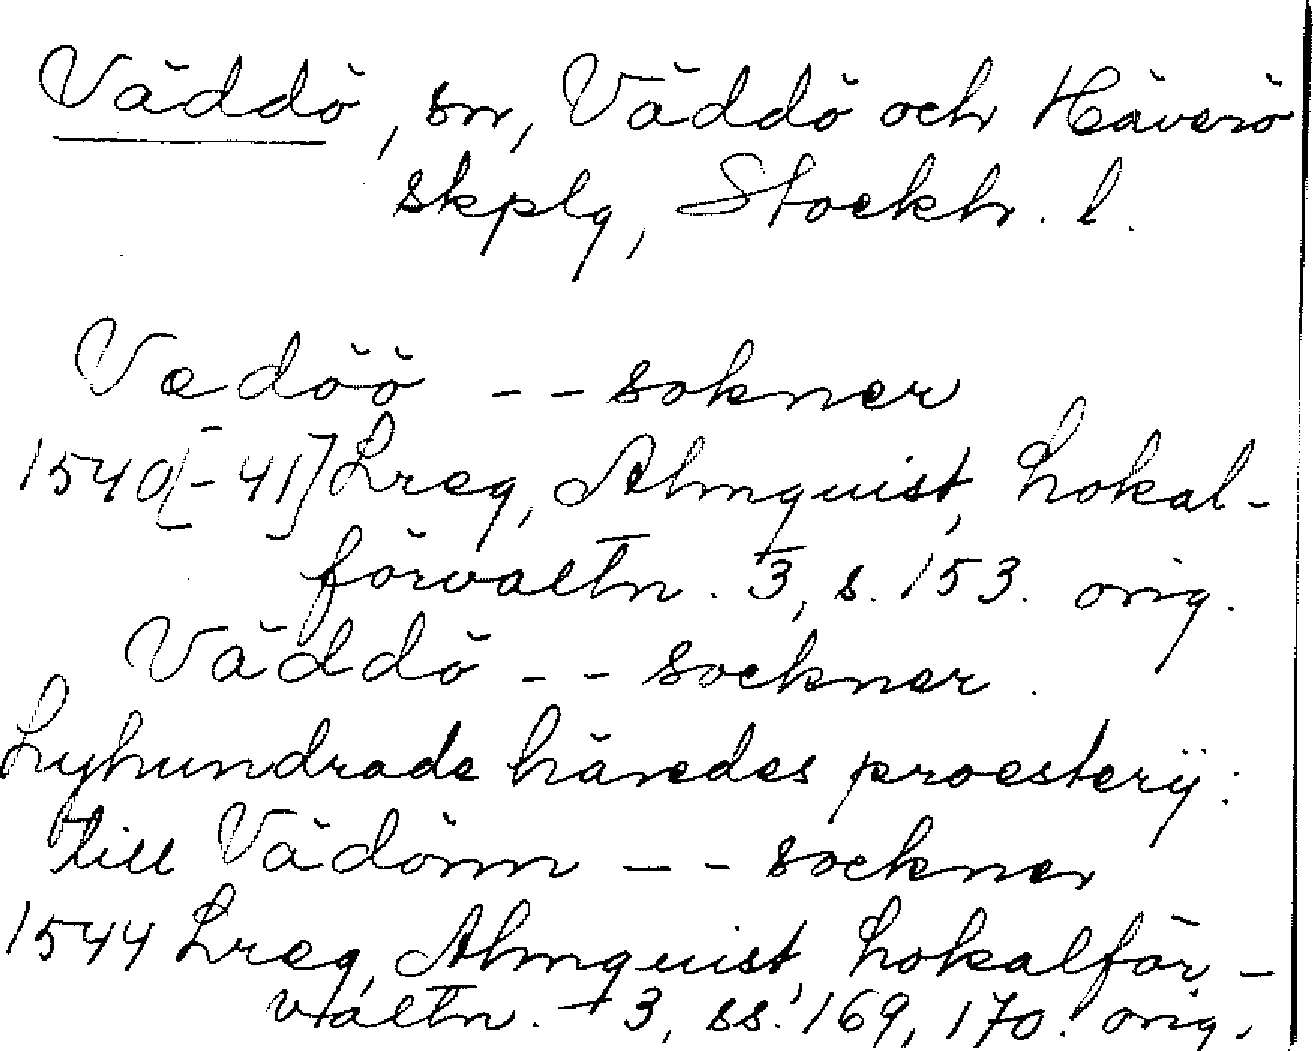 Väddö, sn, Väddö och Häverö
skplg, Stockh. l.
Vedöö -- sokner
1540[-41] Lreg, Almquist, Lokal-
förvaltn. 3, s. 153. orig.
Väddö -- sockner.
Lyhundrade häredes proesterij:
till Vädönn -- sockner
1544 Lreg, Almquist, Lokalför-
valtn. 3, ss. 169, 170. orig.